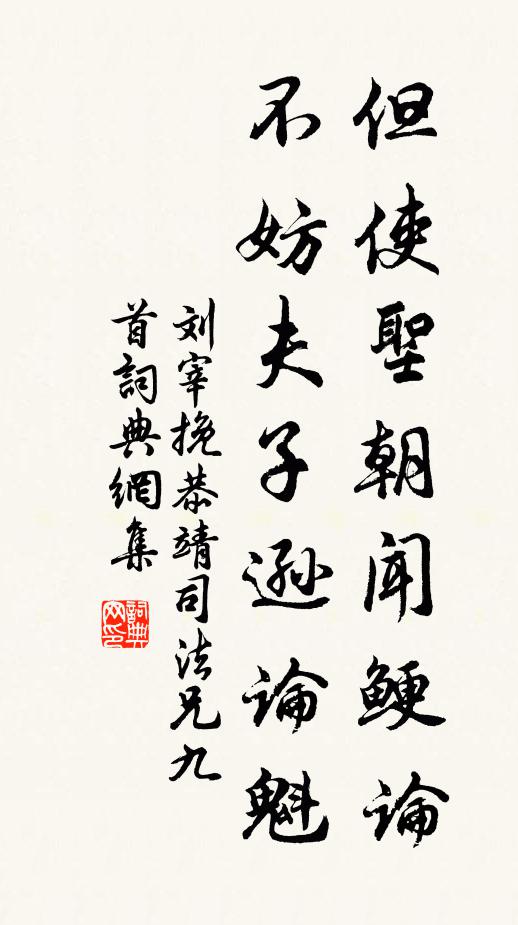 但使聖朝聞鯁論
不妨夫子遜論魁
刘宰挽恭靖司法兄九
首詞典網集
詞典网印